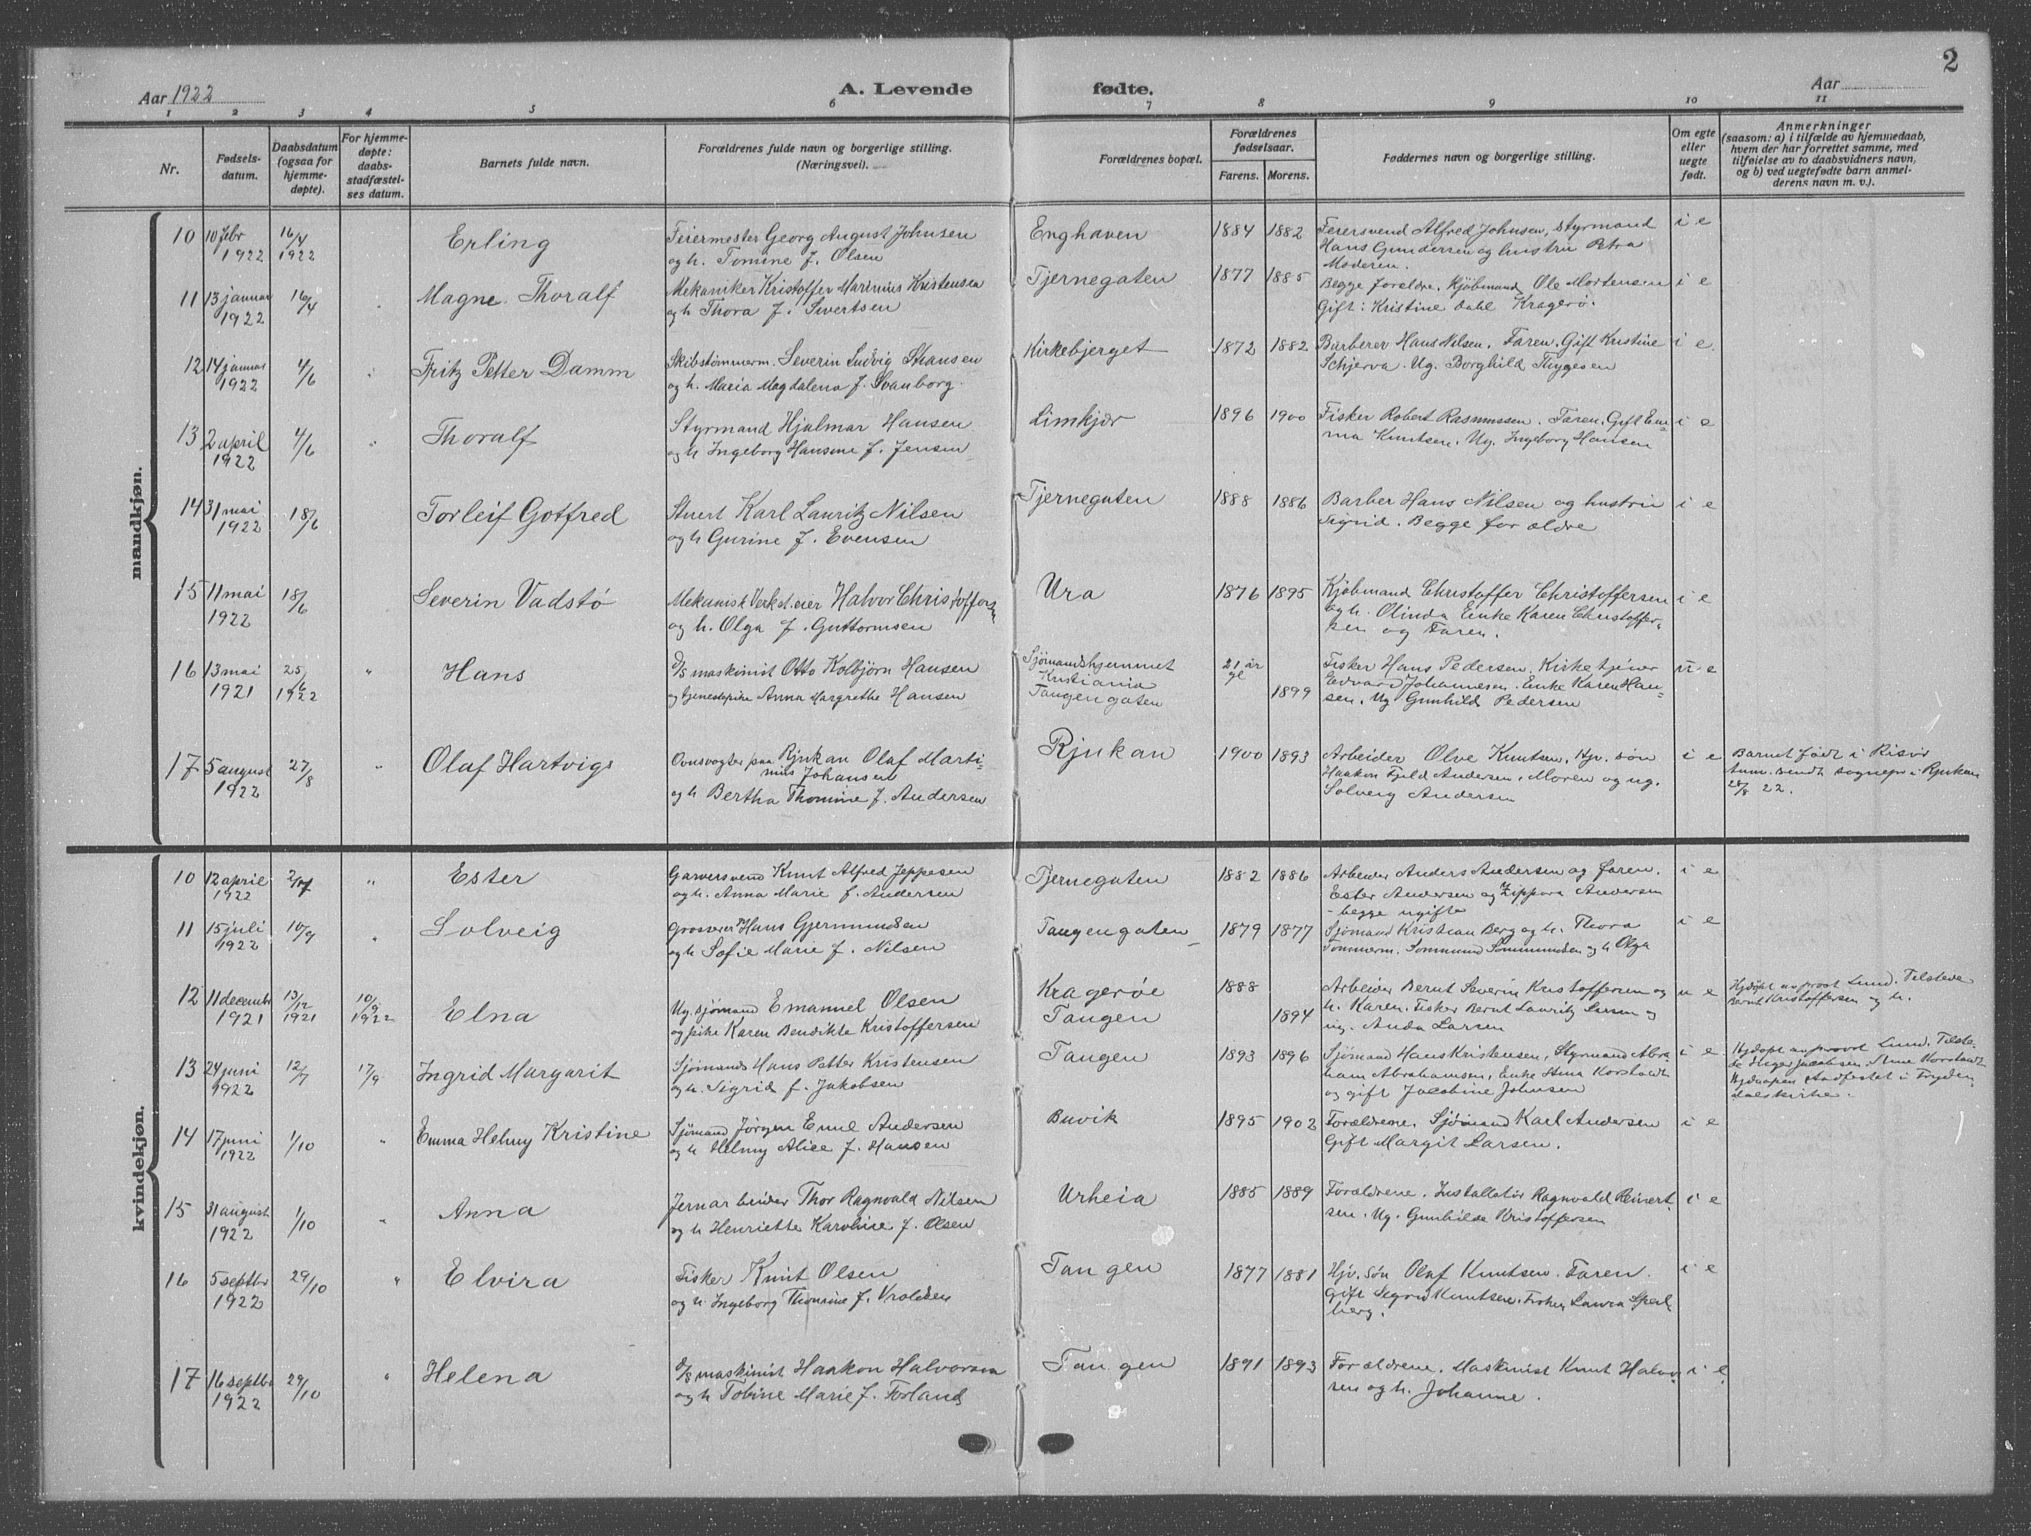 2
Aar 1922
A. Levende fødte.
Aar
1 2 3 4 5 6 7 8 9 10 11
Nr.
Fødsels-
datum.
Daabsdatum
(ogsaa for
hjemme-
døpte).
For hjemme-
døpte:
daabs-
stadfæstel-
ses datum.
Barnets fulde navn.
Forældrenes fulde navn og borgerlige stilling.
(Næringsvei).
Forældrenes bopæl.
Forældrenes
fødselsaar.
Farens. Morens.
Faddernes navn og borgerlige stilling.
Om egte
eller
uegte
født.
Anmerkninger
(saasom: a) i tilfælde av hjemmedaab,
hvem der har forrettet samme, med
tilføielse av to daabsvidners navn,
og b) ved uegtefødte barn anmel-
derens navn m. v.).
mandkjøn.
10 10 febr 1922 16/4 1922 Erling
Feiermester Georg August Johnsen
og h. Tomine f. Olsen
Enghaven 1884 1882
Feiersvend Alfred Johnsen, styrmand
Hans Gundersen og hustru Petra
Moderen.
i e
11 13 januar 1922 16/4 " Magne Thoralf
Mekaniker Kristoffer Marinius Kristensen
og h Thora f. Sivertsen
Tjernegaten 1877 1885
Begge foreldre. Kjøbmand Ole Mortensen
Gift: Kristine Dahl Kragerø.
i e
12 14 januar 1922 4/6 " Fritz Petter Damm
Skibstømmerm. Severin Ludvig Stausen
og h. Maria Magdalena f. Svanborg.
Kirkebjerget 1872 1882
Barberer Hans Nilsen. Faren. Gift Kristine
Schjerva. Ug. Borghild Thygesen
i e.
13 2 april 1922 4/6 " Thoralf
Styrmand Hjalmar Hansen
og h Ingeborg Hansine f. Jensen
Limkjær 1896 1900
Fisker Robert Rasmussen. Faren. Gift Em-
ma Knutsen. Ug. Ingeborg Hansen
i e
14 31 mai 1922 18/6 Torleif Gotfred
Stuert Karl Lauritz Nilsen
og h Gurine f. Evensen
Tjernegaten 1888 1886
Barber Hans Nilsen og hustru
Sigrid. Begge forældre
i e
15 11 mai 1922 18/6 Severin Vadstø
Mekanisk Verksteier Halvor Christoffers.
og h. Olga f. Guttormsen
Ura 1876 1895
Kjøbmand Christoffer Christoffersen
og h. Olinda Enke Karen Christoffer-
sen og Faren.
i e
16 13 mai 1921 25/6 1922 " Hans
D/S maskinist Otto Kolbjørn Hansen
og tjenestepike Anna Margrethe Hansen
Sjømandshjemmet
Kristiania
Tangengaten
21 år gl 1899
Fisker Hans Pedersen. Kirketjener
Edvard Johannesen. Enke Karen Han-
sen. Ug Gunhild Pedersen
u e
17 5 august 1922 27/8 " Olaf Hartvigs
Ovnsvogter paa Rjukan Olaf Marti-
nius Johansen
og h Bertha Thomine f. Andersen
Rjukan 1900 1893
Arbeider Olve Knutsen. Hjv. søn
Haakon Fjeld Andersen. Moren og ug.
Solveig Andersen
i e
Barnet født i Risør
Anm. sendt sognepr i Rjukan
28/8 22.
kvindekjøn.
10 12 april 1922 2/7 " Ester
Garversvend Knut Alfred Jeppesen
og h. Anna Marie f. Andersen
Tjernegaten 1882 1886
Arbeider Anders Andersen og Faren.
Ester Andersen og Zippora Andersen
- begge ugifte
i e
11 15 juli 1922 10/9 " Solveig
Grosserer Hans Gjermundsen
og h Sofie Marie f. Nilsen
Tangengaten 1879 1877
Sjømand Kristian Berg og h. Thora
Tømmerm. Sommund Sommundsen og h Olga
i e
12 11 decembr 1921 13/12 1921 10/9 1922 Elna
Ug. sjømand Emanuel Olsen
og pike Karen Bendikte Kristoffersen
Kragerøe
Tangen
1888 1894
Arbeider Bernt Severin Kristoffersen og
h. Karen. Fisker Bernt Lauritz Larsen og
ug. Anda Larsen
u e
Hjdøpt av prost Lund. Tilstede
Bernt Kristoffersen og h.
13 24 juni 1922 12/7 17/9 Ingrid Margarit
Sjømands Hans Petter Kristensen
og h. Sigrid f. Jakobsen
Tangen 1893 1896
Sjømand Hans Kristensen, Styrmand Abra-
ham Abrahamsen, Enke Stina Korstadt
og gift Jacobine Johnsen
i e
Hjdøpt av provst Lund. Tilste-
de Helger Jacobsen, Stine Korstadt
Hjdaapen stadfestet i Fryden
dalskirke.
14 17 juni 1922 1/10 " Emma Helmy Kristine
Sjømand Jørgen Emil Andersen
og h Helmy Alice f. Hansen
Buvik 1895 1902
Forældrene. Sjømand Karl Andersen
Gift Margit Larsen.
i e
15 31 august 1922 1/10 " Anna
Jernarbeider Thor Ragnvald Nilsen
og h Henriette Karoline f. Olsen
Urheia 1885 1889
Forældrene. Installatør Ragnvald Reinert-
sen. Ug. Gunhilde Kristoffersen
i e
16 5 septbr 1922 29/10 " Elvira
Fisker Knut Olsen
og h. Ingeborg Thomine f. Vroldsen
Tangen 1877 1881
Hjv. søn Olaf Knutsen. Faren.
Gift Sigrid Knutsen. Frøken Laura Spar-
berg.
i e
17 16 septbr 1922 29/10 " Helena
D/S maskinist Haakon Halvorsen
og h Tobine Marie f. Forland
Tangen 1891 1893
Forældrene. Maskinist Knut Halvor
sen og h. Johanne.
i e